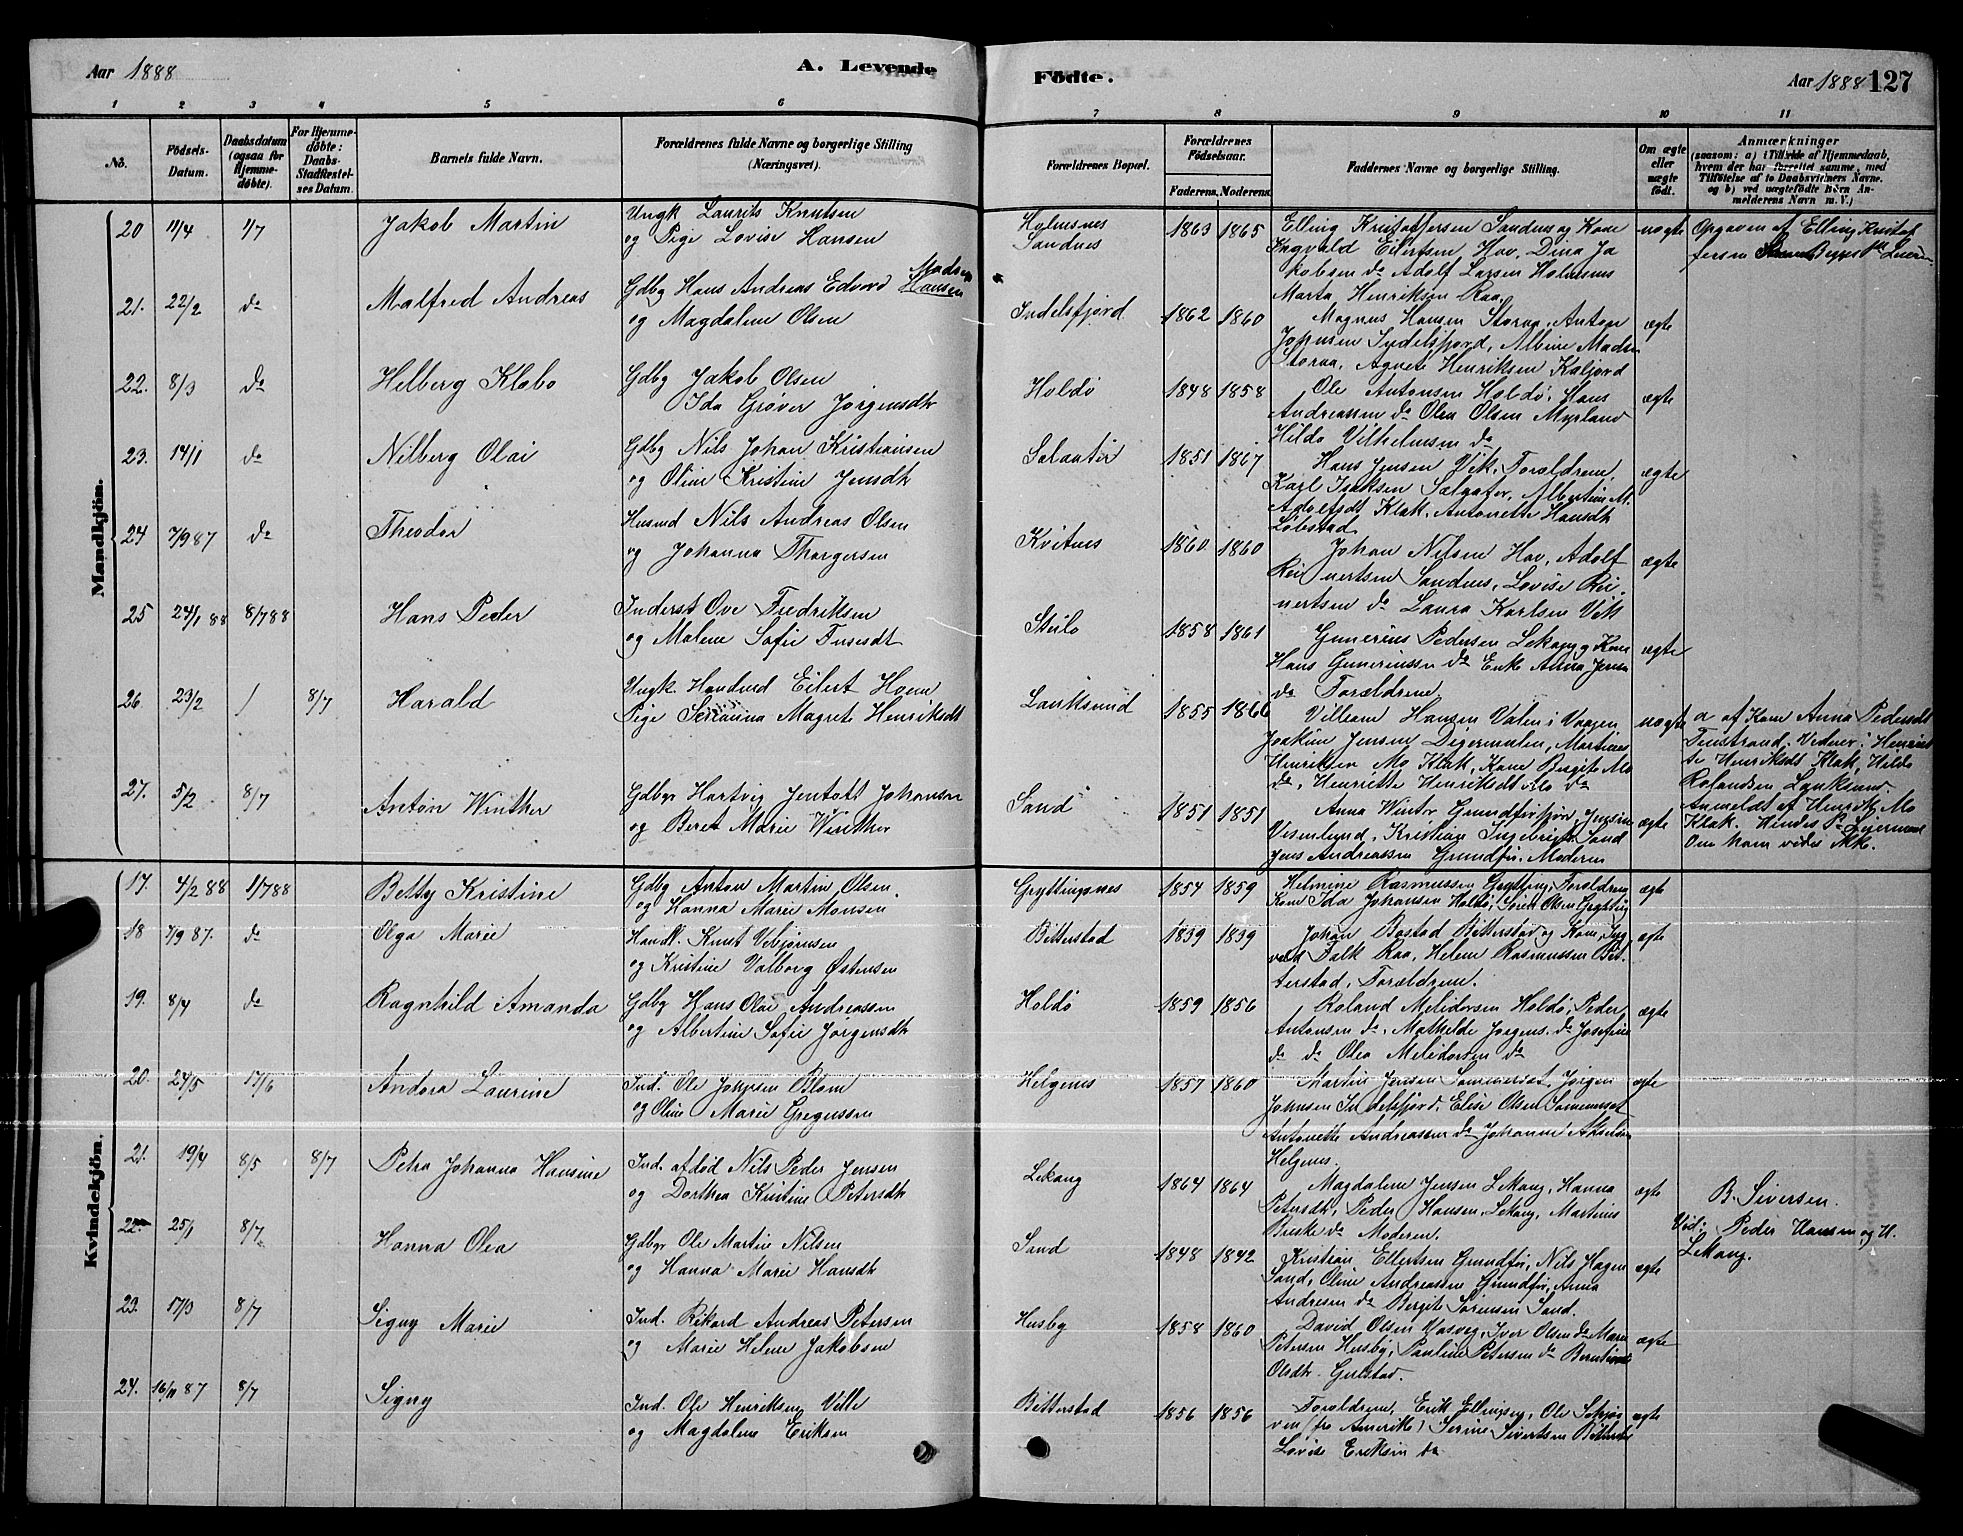 Aar 1888
A. Levende
Födte.
Aar 1888 127
1 2 3 4 5 6 7 8 9 10 11
No.
Födsels-
Datum.
Daabsdatum
(ogsaa for
Hjemme-
döbte).
For Hjemme-
döbte:
Daabs-
Stadfæstel-
ses Datum.
Barnets fulde Navn.
Forældrenes fulde Navne og borgerlige Stilling
(Næringsvei).
Forældrenes Bopæl.
Forældrenes
Födselsaar.
Faderens. Moderens.
Faddernes Navne og borgerlige Stilling.
Om ægte
eller
uægte
födt.
Anmærkninger
(saasom: a) i Tilfælde af Hjemmedaab,
hvem der har forrettet samme, med
Tilföielse af to Daabsvidners Navne.
og b) ved uægtefödte Börn An-
melderens Navn m. V.)
Mandkjön.
20 11/4 1/7 Jakob Martin
Ungk Laurits Knutsen
og Pige Lovise Hansen
Holmsnes
Sandnes
1863 1865
Elling Kristoffersen Sandnes og Kone
Ingvald Eilertsen Hov, Dina Ja
kobsen do Adolf Larsen Holmsnes
Marta Henriksen Raa.
uægte
Opgaven af Elling Kristof
fersen
21. 22/2 do Malfred Andreas
Gdbg Hans Andreas Edvard Hansen
Madsen
og Magdalene Olsen
Indelsfjord
1862 1860
Magnus Hansen Storaa, Anton
Johnsen Indelsfjord, Albine Madsen
Storaa, Agnete Henriksen Kaljord
ægte
22. 8/3 do Helberg Klabo
Gdbg Jakob Olsen
Ida Gröver Jörgensdtr
Holdö
1848 1858
Ole Antonsen Holdö, Hans
Andreassen do Olea Olsen Myrland
Hilda Vilhelmsen do
ægte
23. 14/1 do Nilberg Olai
Gdbg Nils Johan Kristiansen
og Oline Kristine Jensdtr
1851 1867
Hans Jensen Vik, Foreldrene,
Karl Isaksen, Albertine M.
Adolfsdt Klak, Antonette Hansdtr
Löbstad
ægte
24 7/9 87 do Theodor
Husmd Nils Andreas Olsen
og Johanna Thorgersen
Kvitnes
1860 1860
Johan Nilsen Hov, Adolf
Rei nertsen Sandnes, Lovise Rei-
nertsen do Laura Karlsen Vik
ægte
25 24/1 88 8/7 88 Hans Peder
Inderst Ove Fredriksen
og Malene Sofie
1858 1861
Gunerius Pedersen Lekang og Kone
Hans Guneriussen do Enke Anna Jensen
do Forældrene.
ægte
26. 23/2 / 8/7 Harald
Ungk. Handmd Eilert Hoem
Pige Serianna Magrete Henriksdt
Lanksund
1855 1866
Villiam Hansen Valen i Vaagen
Joakim Jensen Digermulen, Martinus
Henriksen Mo Klak, Kone Bergite Mo
do, Henriette Henriksdt Mo do
uægte
a af Kone Anna Pedersdt
Finstrand. Videre: Henriet
te Henriksdt Klak, Hilda
Rolandsen Lanksund.
Anmeldt af Henrik Mo
Klak. Hendes
Om ham vides Ikke.
27. 5/2 8/7 Anton Winther
Gdbgr Hartvig Jentoft Johansen
og Beret Marie Winther
Sand
1851 1851
Anna Winter Grundförfjord, Jensine
Vesmlund, Kristian Ingebrigts. Sand
Jens Andreassen Grundför. Moderen
ægte
Kvindekjön.
17. 4/2 88 1/7 88 Betty Kristine
Gdbg Anton Martin Olsen.
og Hanna Marie Monsen
Gryttingsnes
1854 1859
Helmine Rasmussen Grytting, Foreldrene
Kone Ida Johansen Holdö, Sören Olsen Grytting
ægte
18 7/9 87. do Olga Marie
Handl. Knut Vebjörnsen
og Kristine Valborg Östensen
Bitterstad
1859 1859
Johan Bostad Bitterstad og Kone, Ing
vald Falk Raa, Helene Rasmussen Bit-
terstad, Forældrene.
ægte
19. 8/4 do Ragnhild Amanda
Gdbg Hans Olai Andreassen
og Albertine Sofie Jörgensdtr
Holdö
1859 1856
Roland Melidorsen Holdö, Peder
Antonsen do, Mathilde Jörgens. do Josefine
do do Olea Melidorsen do
ægte
20. 24/5 17/6 Andora Laurine
Ind. Ole Johnsen Blom
og Oline Marie Gregussen
Helgenes
1857 1860
Martin Jensen Sommerset, Jörgen
Johnsen Indelsfjord, Elise Olsen Sommerset
Antonette Andreassen do Johanne Akselsen
Helgenes.
ægte
21. 19/4 8/5 8/7 Petra Johanna Hansine
Ind. afdöd Nils Peder Jensen
og Dorthea Kristine Petersdtr
Lekang
1864 1864
Magdalene Jensen Lekang, Hanna
Petersdtr, Peder Hansen, Lekang, Martinus
Buske do Moderen.
ægte
B. Siversen.
Vid: Peder Hansen og H.
Lekang.
22. 25/1 8/7 Hanna Olea
Gdbgr Ole Martin Nilsen
og Hanna Marie Hansdtr
Sand
1848 1842
Kristian Ellertsen Grundför, Nils Hagen
Sand, Oline Andreassen Grundför, Anna
Andresen do Bergite Sörensen Sand.
ægte
23. 17/3 8/7 Signy Marie
Ind. Rikard Andreas Petersen
og Marie Helene Jakobsen
Husby
1858 1860
David Olsen Vasvig, Iver Olsen do Marie
Petersen Husby, Pauline Petersen do Berntine
Olsdtr. Gulstad.
ægte
24. 16/11 87 8/7 Signy
Ind. Ole Henriksen Velle
og Magdalene Eriksen
Bitterstad
1856 1856
Forældrene, Erik Ellingsen, Ole Schjör
ven (fra Amerika) Serine Sivertsen Bitterstad
Lovise Eriksen do
ægte